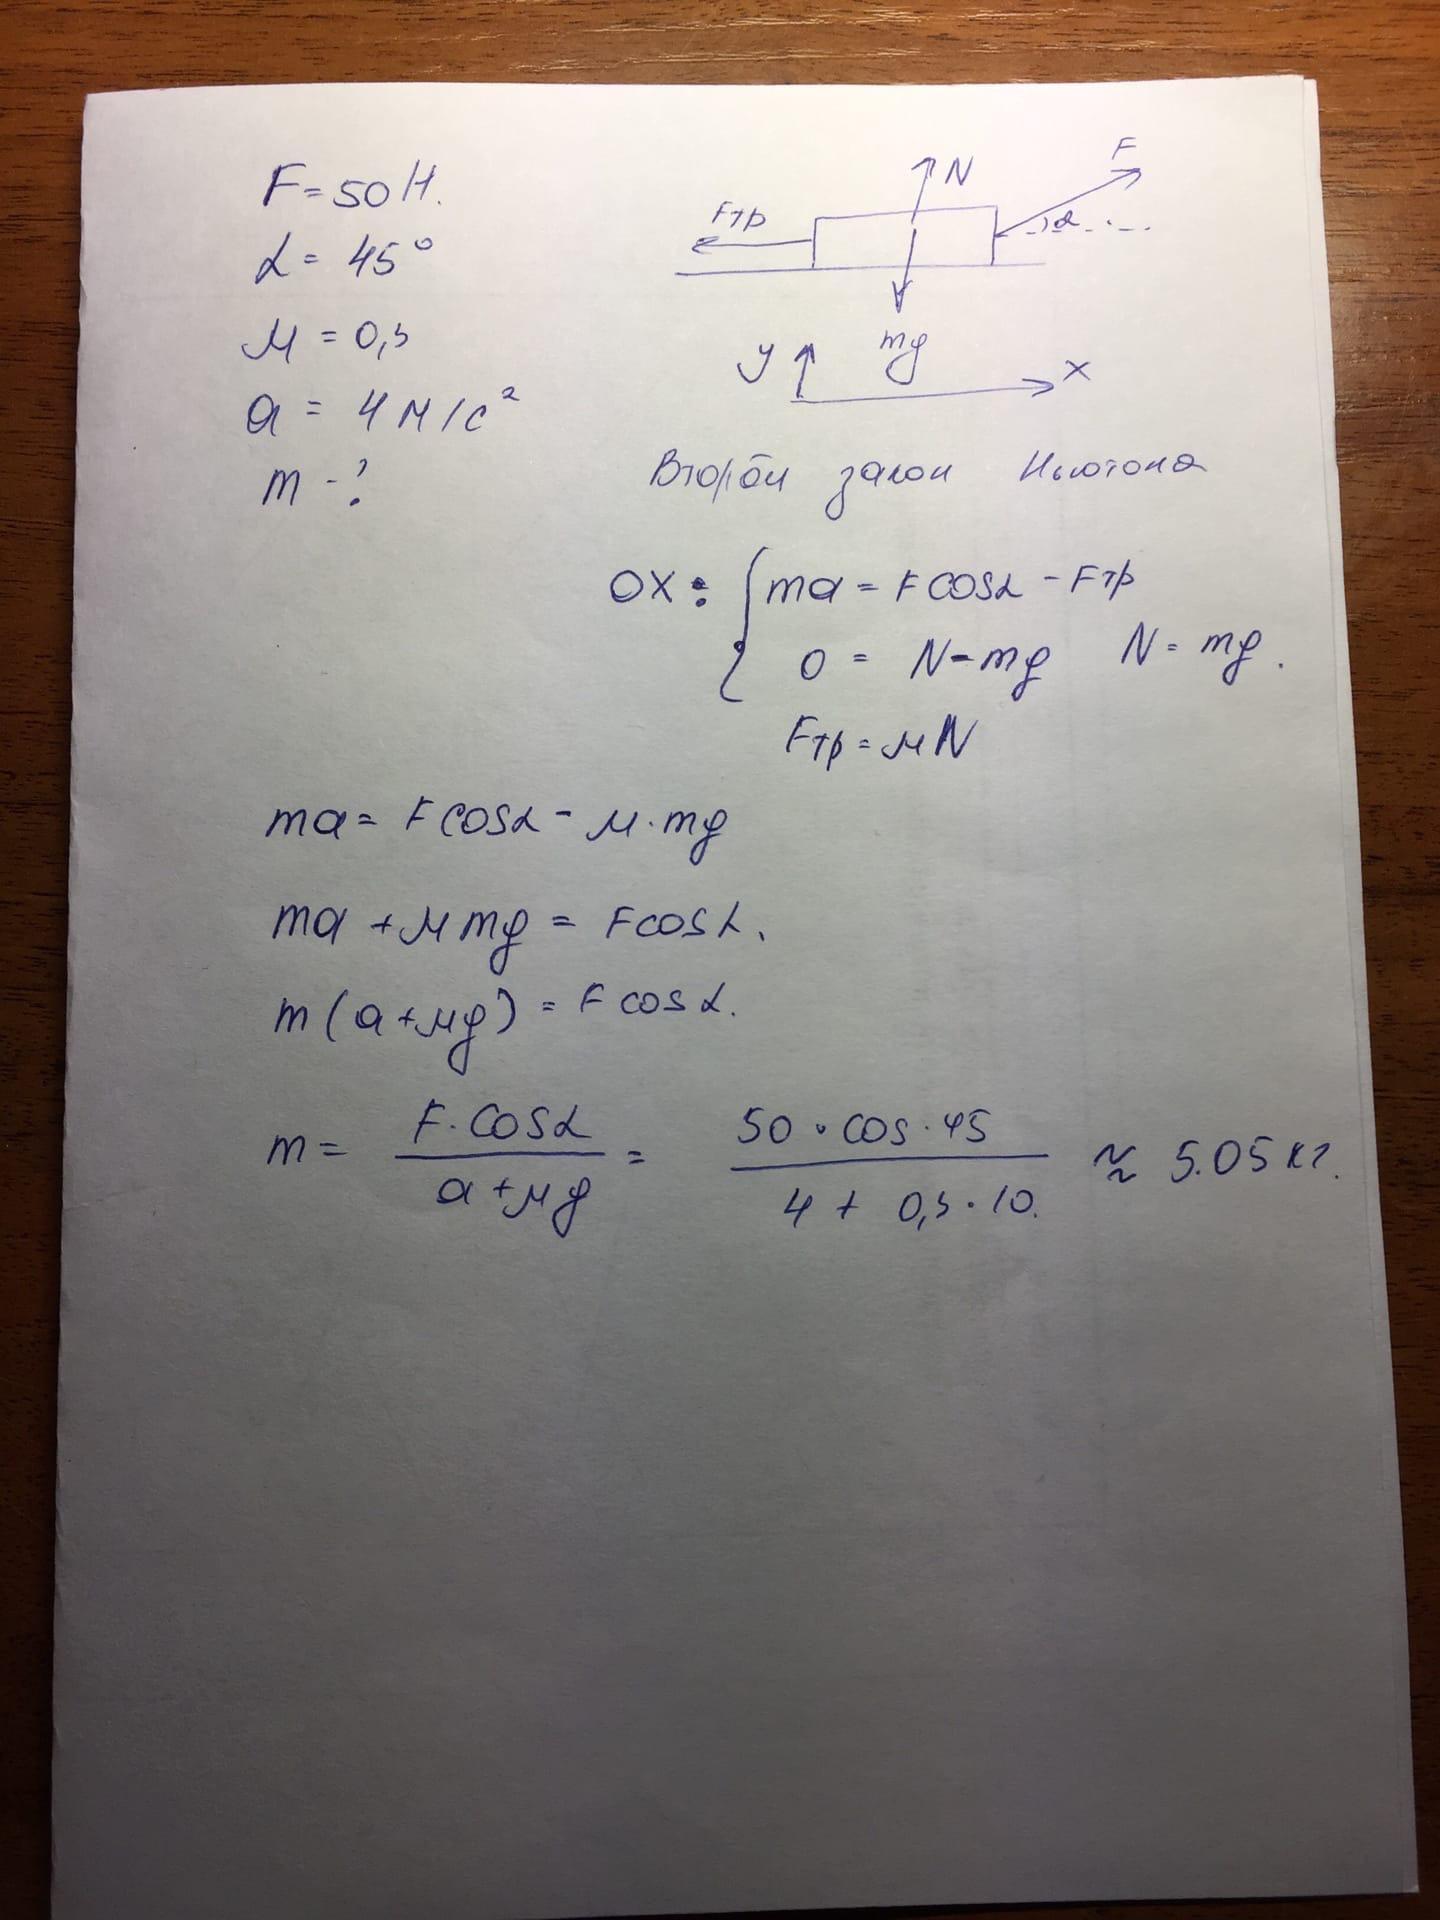 F = 50 Н.
α = 45°
μ = 0,3
a = 4 м/с²
m - ?
N
F
Fтр
α
mg
y
x
Второй закон Ньютона
OX: ma = F cosα - Fтр
0 = N - mg N = mg.
Fтр = μN
ma = F cosα - μ·mg
ma + μmg = F cosα.
m(a + μg) = F cosα.
m = F·cosα / a + μg = 50 · cos · 45 / 4 + 0,3 · 10. ≈ 5.05 кг.